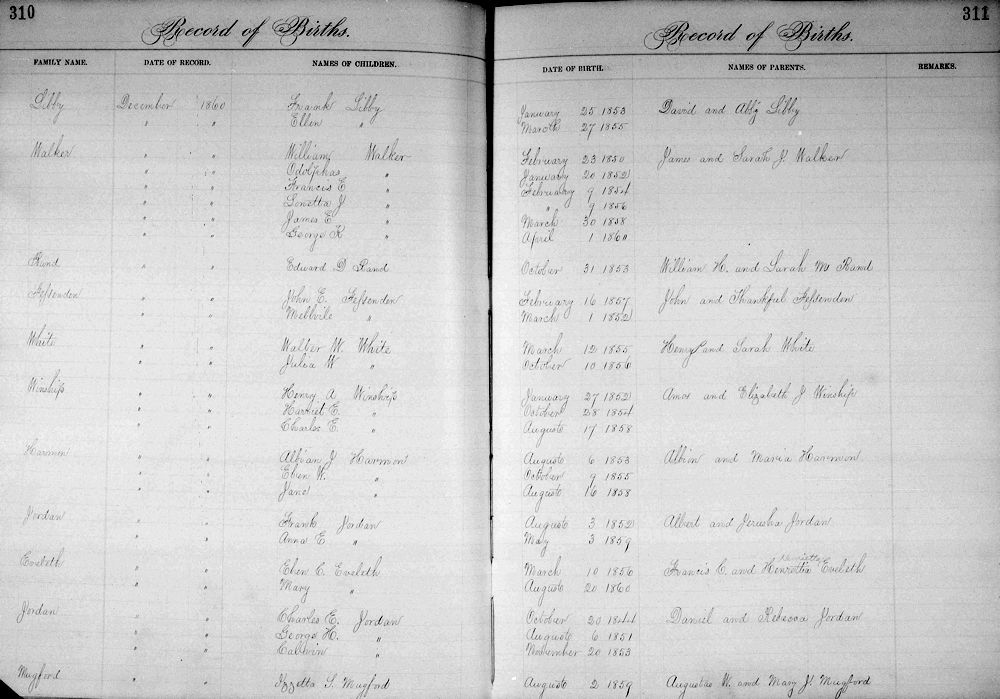 310
Record of Births.
FAMILY NAME. DATE OF RECORD. NAMES OF CHILDREN.
Libby December 1860 Frank Libby
" " Ellen "
Walker " " William Walker
" " Odolphas "
" " Francis E "
" " Lonetta J "
" " James E "
" " George K "
Rand " " Edward D Rand
Fessenden " " John E. Fessenden
" " Mellvile "
White " " Walter W. White
" " Julia W "
Winship " " Henry A Winship
" " Harriet E. "
" " Charles E. "
Harmon " " Albian J Harmon
" " Eben W. "
" " Jane "
Jordan " " Frank Jordan
" " Anna E "
Eveleth " " Eben C. Eveleth
" " Mary "
Jordan " " Charles E. Jordan
" " George H. "
" " Calwin "
Mugford " " Izzetta S. Mugford
311
Record of Births.
DATE OF BIRTH. NAMES OF PARENTS. REMARKS.
January 25 1853 David and Abby Libby
March 27 1855
February 23 1850 James and Sarah J Walker
January 20 1852
February 9 1854
" 9 1856
March 30 1858
April 1 1860
October 31 1853 William H. and Sarah M Rand
February 16 1857 John and Thankful Fessenden
March 1 1852
March 12 1855 Henry and Sarah White
October 10 1856
January 27 1852 Amos and Elizabeth J Winship
October 28 1854
August 17 1858
August 6 1853 Albion and Maria Harmon
October 9 1855
August 16 1858
August 3 1852 Albert and Jerusha Jordan
May 3 1859
Henrietta
March 10 1856 Francis C. and Henrietta Eveleth
August 20 1860
October 20 1844 Daniel and Rebecca Jordan
August 6 1851
November 20 1853
August 2 1859 Augustus W. and Mary J. Mugford